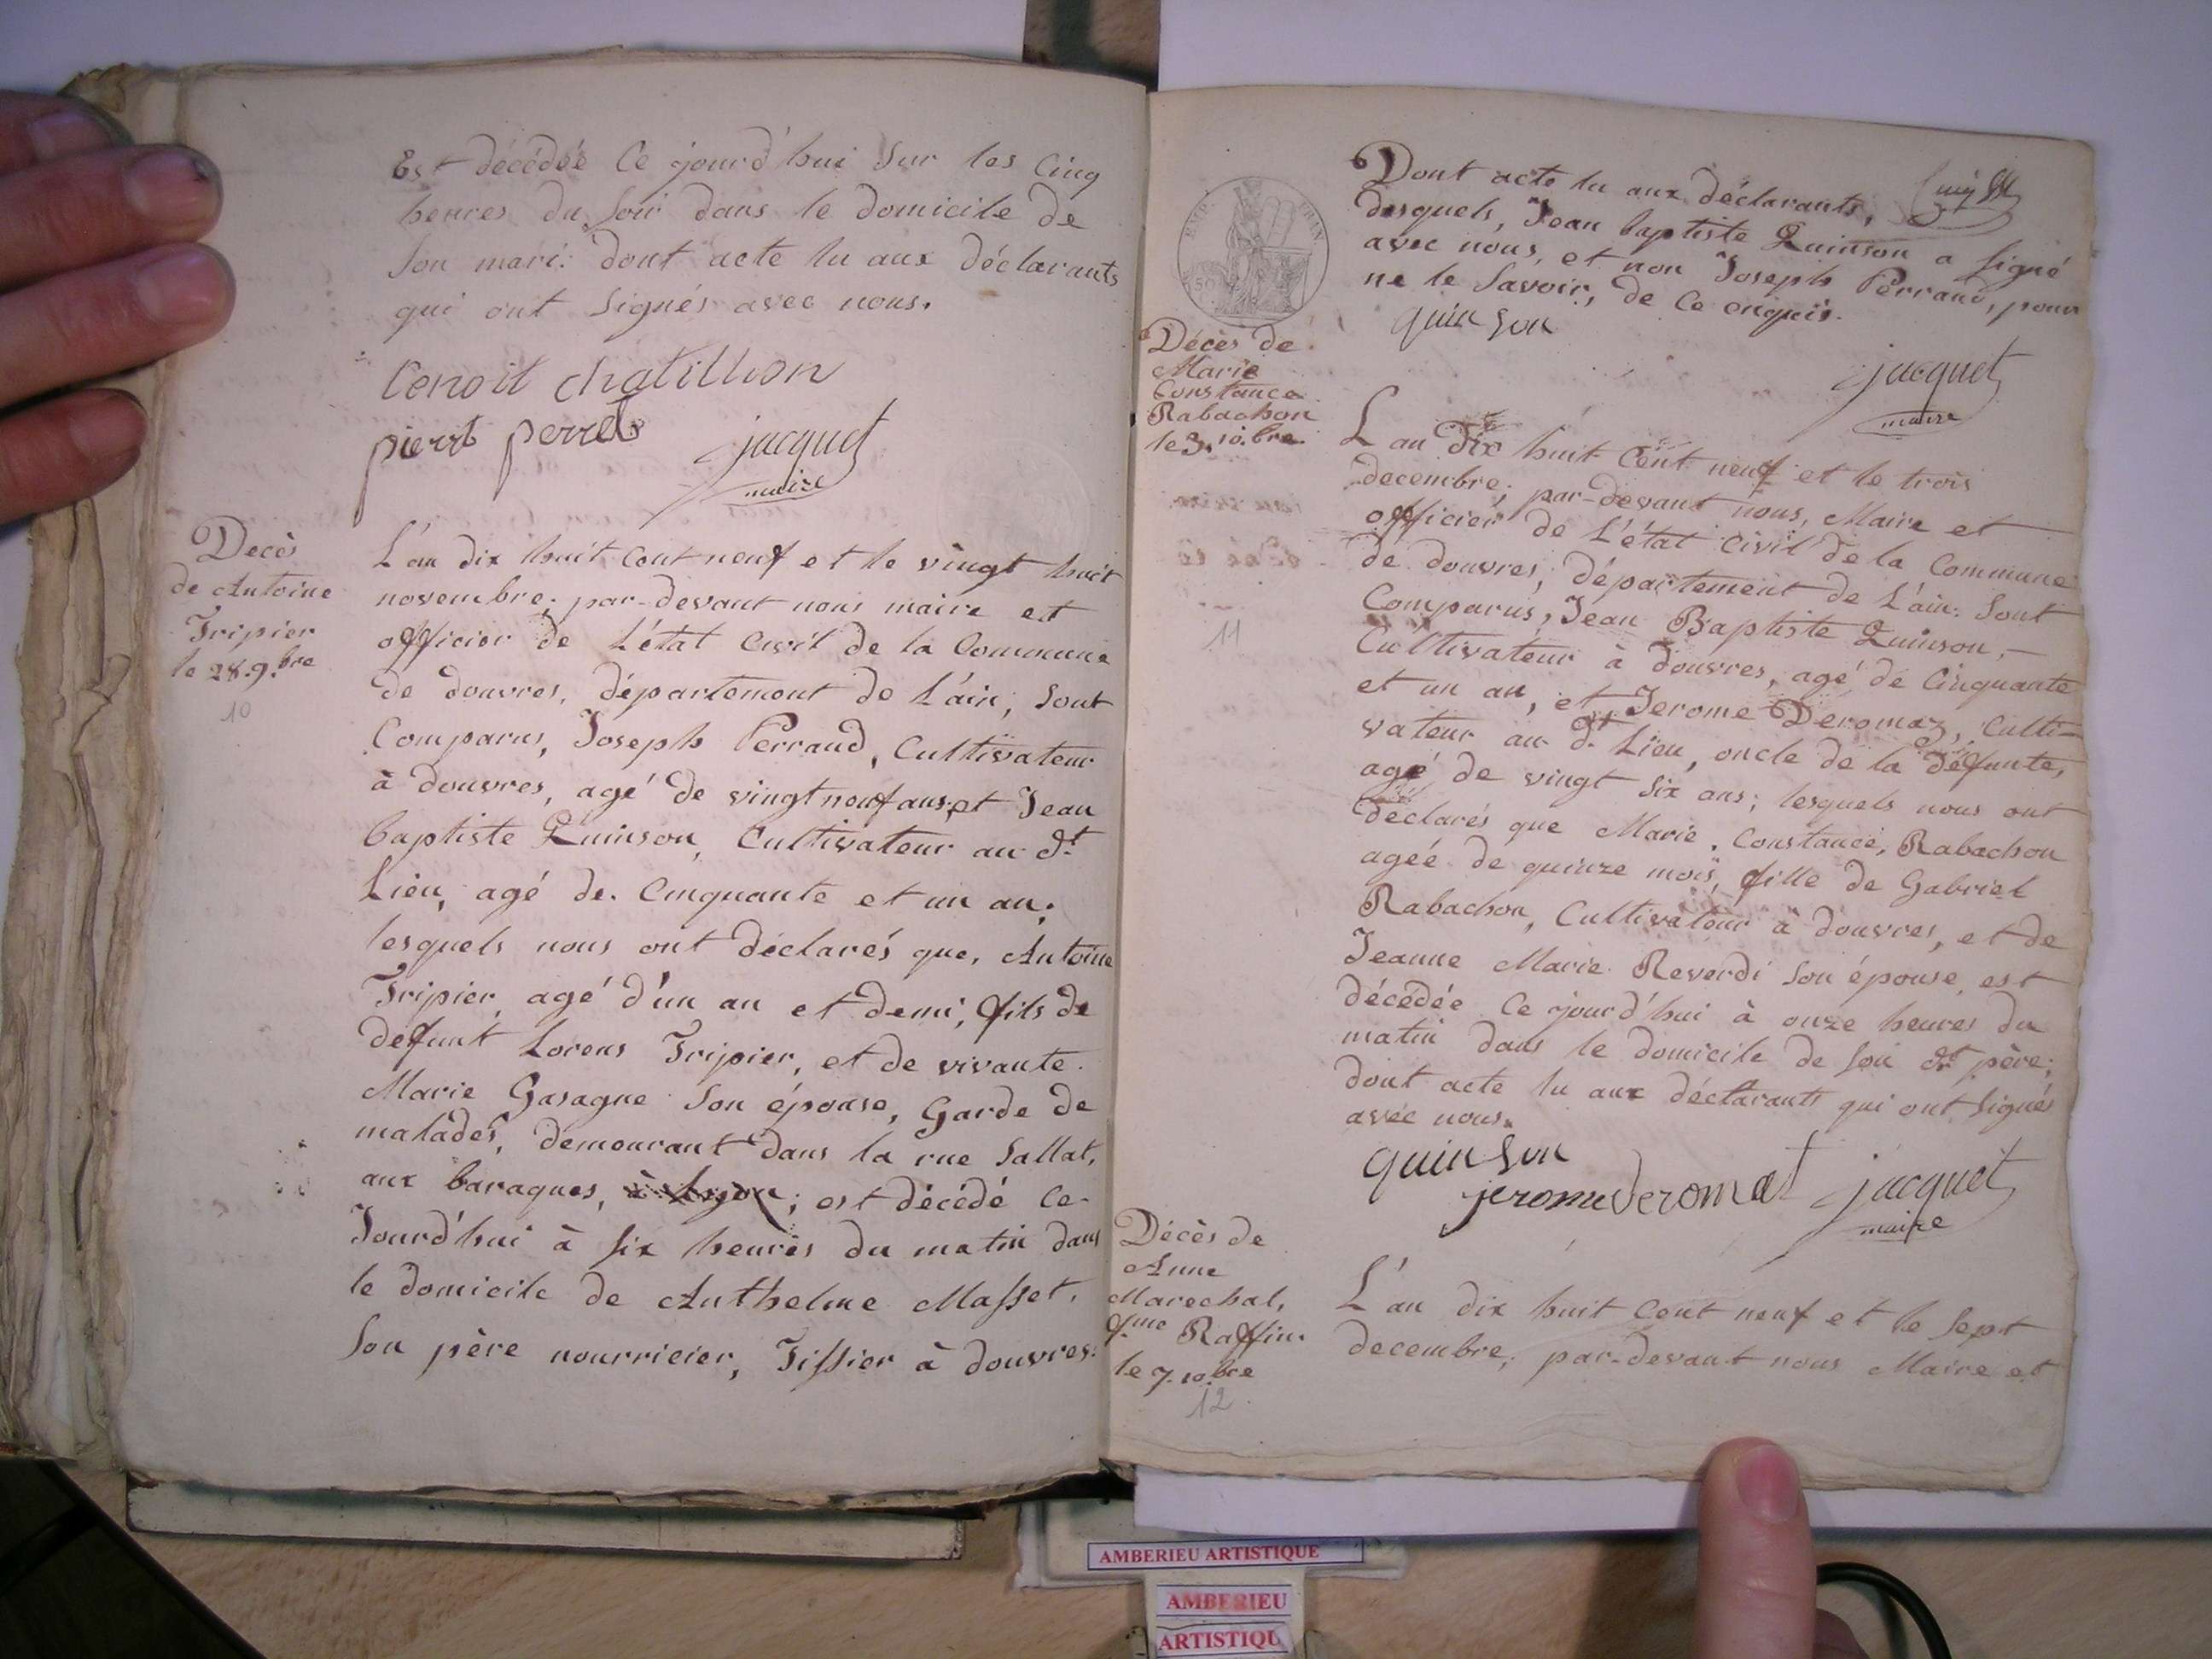 Est décédée Ce jourd'hui Sur les Cinq
heures du Soir dans le domicile de
Son mari: dont acte lu aux déclarants
qui ont Signés avec nous.
benoit chatillon
pierre perret
jacquet
maire
Decès
de Antoine
Tripier
le 28. 9.bre
10
L'an dix huit Cent neuf et le vingt huit
novembre; par-devant nous maire et
officier de L'état Civil de la Commune
de douvres, département de L'ain; Sont
Comparus, Joseph Perraud, Cultivateur
à douvres, agé de vingt neuf ans; et Jean
baptiste Quinson, Cultivateur au dt.
Lieu, agé de Cinquante et un an;
lesquels nous ont déclarés que, Antoine
Tripier, agé d'un an et demi, fils de
defunt Lorens Tripier, et de vivante
Marie Gasagne Son épouse, Garde de
malades, demeurant dans la rue Sallat,
aux baraques, à Lyon; est décédé Ce-
Jourd'hui à Six heures du matin dans
le domicile de Anthelme Masset,
Son père nourricier, Tissier à douvres:
EMP. FRAN.
50
Dont acte lu aux déclarants,
desquels, Jean baptiste Quinson a Signé
avec nous, et non Joseph Perraud, pour
ne le Savoir, de Ce enquis.
quinson
jacquet
maire
Décès de
Marie
Constance
Rabachon
le 3. 10.bre
11
L'an Dix huit Cent neuf et le trois
decembre; par-devant nous, Maire et
officier de L'état Civil de la Commune
de douvres, département de L'ain: Sont
Comparus, Jean Baptiste Quinson,-
Cultivateur à douvres, agé de Cinquante
et un an, et Jerome Deromaz, Culti=
vateur au dt. Lieu, oncle de la défunte,
agé de vingt Six ans; lesquels nous ont
déclarés que Marie, Constance, Rabachon
agée de quinze mois, fille de Gabriel
Rabachon, Cultivateur à douvres, et de
Jeanne Marie Reverdi Son épouse, est
décédée Ce jourd'hui à onze heures du
matin dans le domicile de Son dt. père;
dont acte lu aux déclarants qui ont Signés
avec nous.
quinson
jerome deromat
jacquet
maire
Décès de
Anne
Marechal,
f.me Raffin.
le 7. 10.bre
12
L'an dix huit Cent neuf et le Sept
decembre; par-devant nous Maire et
AMBERIEU ARTISTIQUE
AMBERIEU
ARTISTIQU